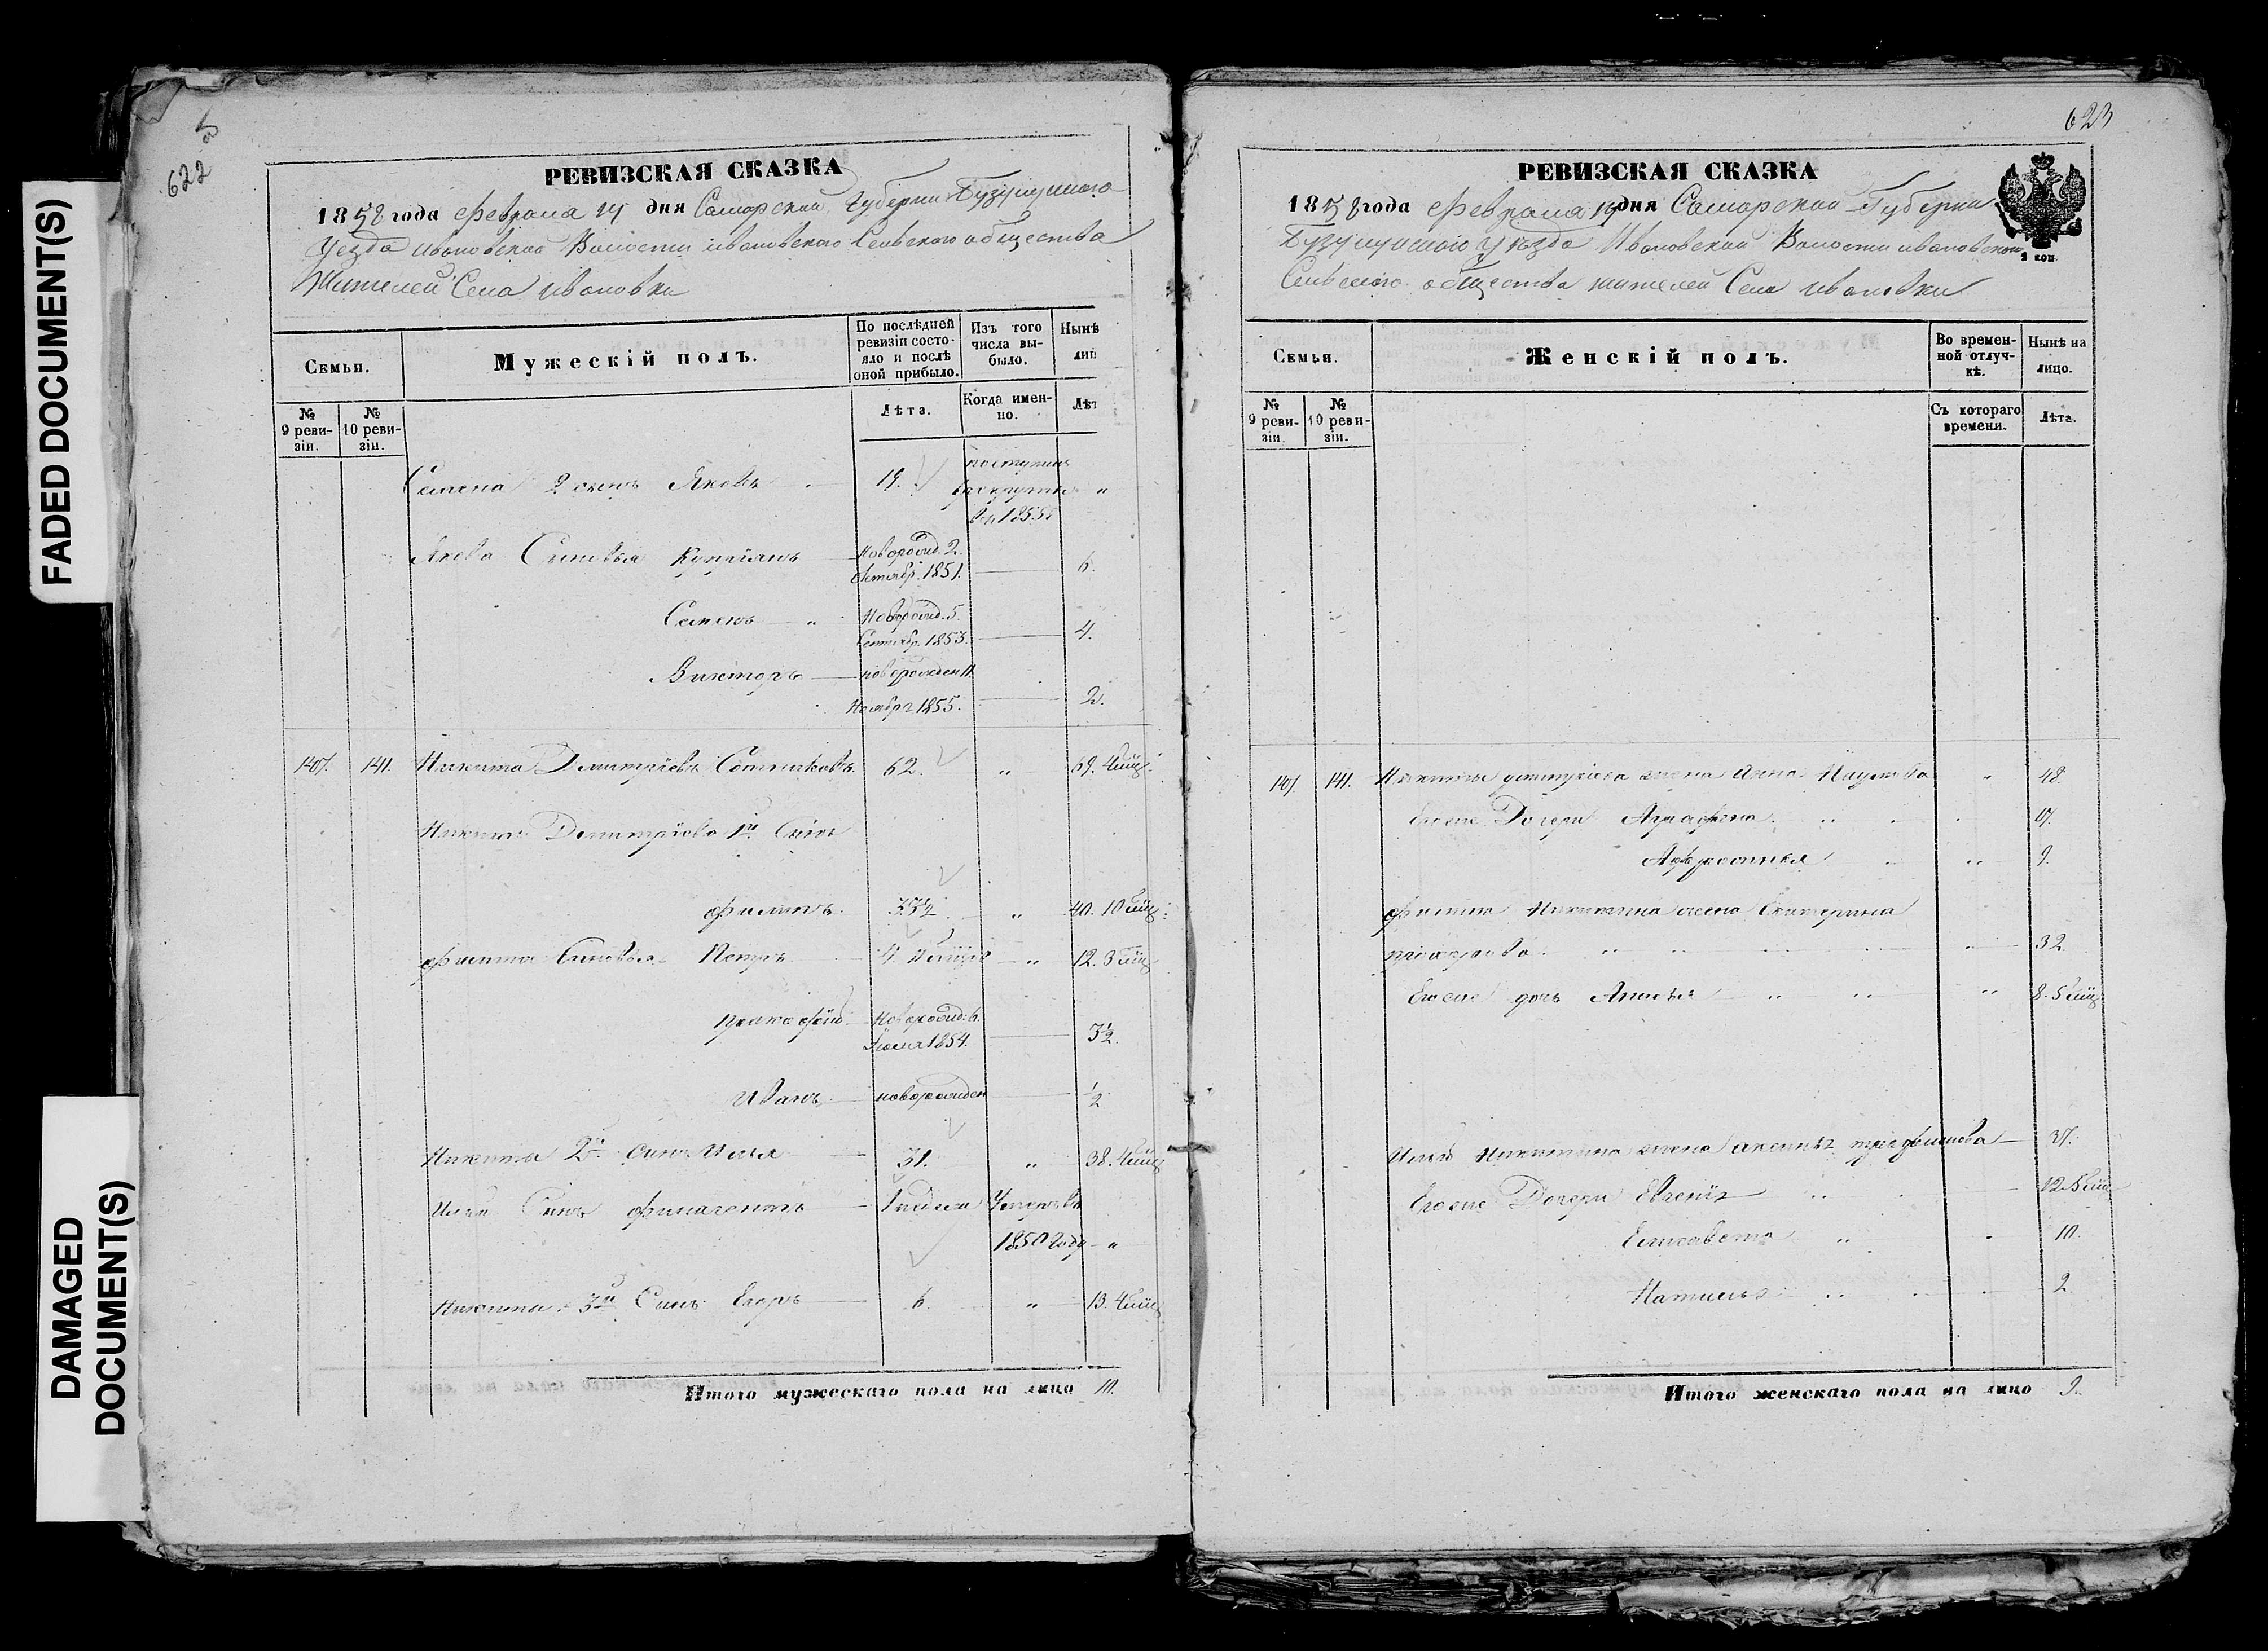 FADED DOCUMENT(S)
DAMAGED
DOCUMENT(S)
5
622
РЕВИЗСКАЯ СКАЗКА
1858 года февраля 14 дня Самарской Губернии Бузулукского
Уезда Ивановской Волости Ивановского Сельского общества
Жителей Села Ивановки
Семьи.
Мужескій полъ.
По послѣдней ревизіи состояло и послѣ оной прибыло.
Изъ того числа выбыло.
Нынѣ
лиц
№ 9 ревизіи.
№ 10 ревизіи.
Лѣта.
Когда именно.
Лѣт
Семена 2 сынъ Яковъ 19. поступилъ 1855 "
Якова Сыновья Новорожд. 2. Октябр. 1851. 6.
Семенъ " Новорожд. 5. Сентябр. 1853. 4.
Викторъ новорожден 11. Ноября 1855. 2.
140. 141. Никита Дмитріевъ Сотниковъ 62. " 69. 4 мѣц.
Никиты Дмитріева 1й Сынъ
Филипъ 33½ " 40. 10 мѣц.
Филипа Сыновья Петръ " 12. 3 мѣц.
Прокофій Новорожд. 6. Іюля 1854. 3½
Иванъ новорожден ½
Никиты 2й Сынъ Илья 31. " 38. 4 мѣц
Ильи Сынъ 1 недели Умеръ въ 1850 году "
Никиты 3й Сынъ Егоръ 6. " 13. 4 мѣц
Итого мужескаго пола на лицо 10.
623
РЕВИЗСКАЯ СКАЗКА
1858 года февраля 14 дня Самарской Губернии
Бузулукского уезда Ивановской Волости Ивановского
Сельского общества жителей Села Ивановки
3 коп.
Семьи.
Женскій полъ.
Во временной отлучкѣ.
Нынѣ на лицо.
№ 9 ревизіи.
№ 10 ревизіи.
Съ котораго времени.
Лѣта.
140. 141. Никиты Дмитріева жена Анна Наумова " 48.
Егоже Дочери Аграфена 17.
" 9.
Филипа Никитина жена Екатерина
32.
Егоже дочь " 8. 5 мѣц
Ильи Никитина жена Аксинья 37.
Егоже Дочери Евгенія 12.
Елисавета 10.
Наталья 2
Итого женскаго пола на лицо 9.